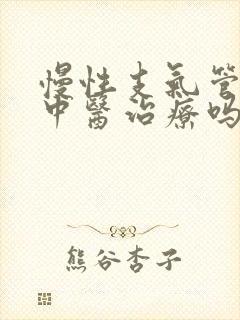 慢性支氣管
中醫治療吗
熊谷杏子